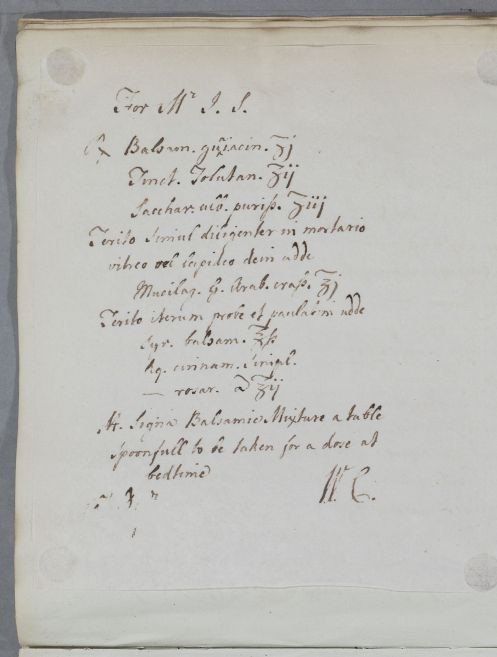 For Mr J. S.
℞ Balsam. guajacin. ʒj
Tinct. Tolutan. ʒij
Sacchar. alb. puriss. ʒiij
Terito simul diligenter in mortario
vitreo vel lapideo dein adde
Mucilag. G. Arab. crass. ℥j
Terito iterum probe et paulatim adde
Syr. balsam. ℥ß
Aq. cinnam. simpl.
— rosar. a ℥ij
M. Signa Balsamic Mixture a table
spoonfull to be taken for a dose at
bedtime
W. C.